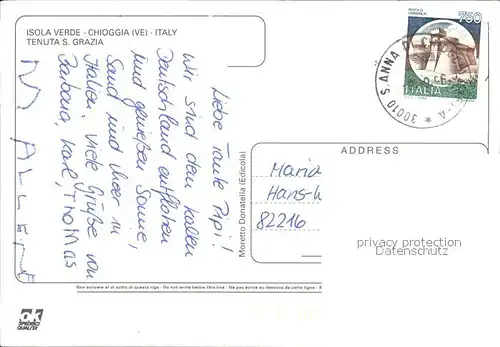 ISOLA VERDE - CHIOGGIA (VE) - ITALY
TENUTA S. GRAZIA
Liebe Tante Pipi!
Wir sind dem kalten
Deutschland entflohen
und genießen Sonne,
Sand und Meer in
Italien. Viele Grüße von
Barbara, Karl, Thomas
Moretto Donatella (Edicola)
750
ITALIA
30010 S. ANNA
ADDRESS
Maria
Hans-
82216
privacy protection
Datenschutz
Non scrivere al di sotto di questa riga - Do not write below this line - Ne pas écrire au dessous de cette ligne
ok